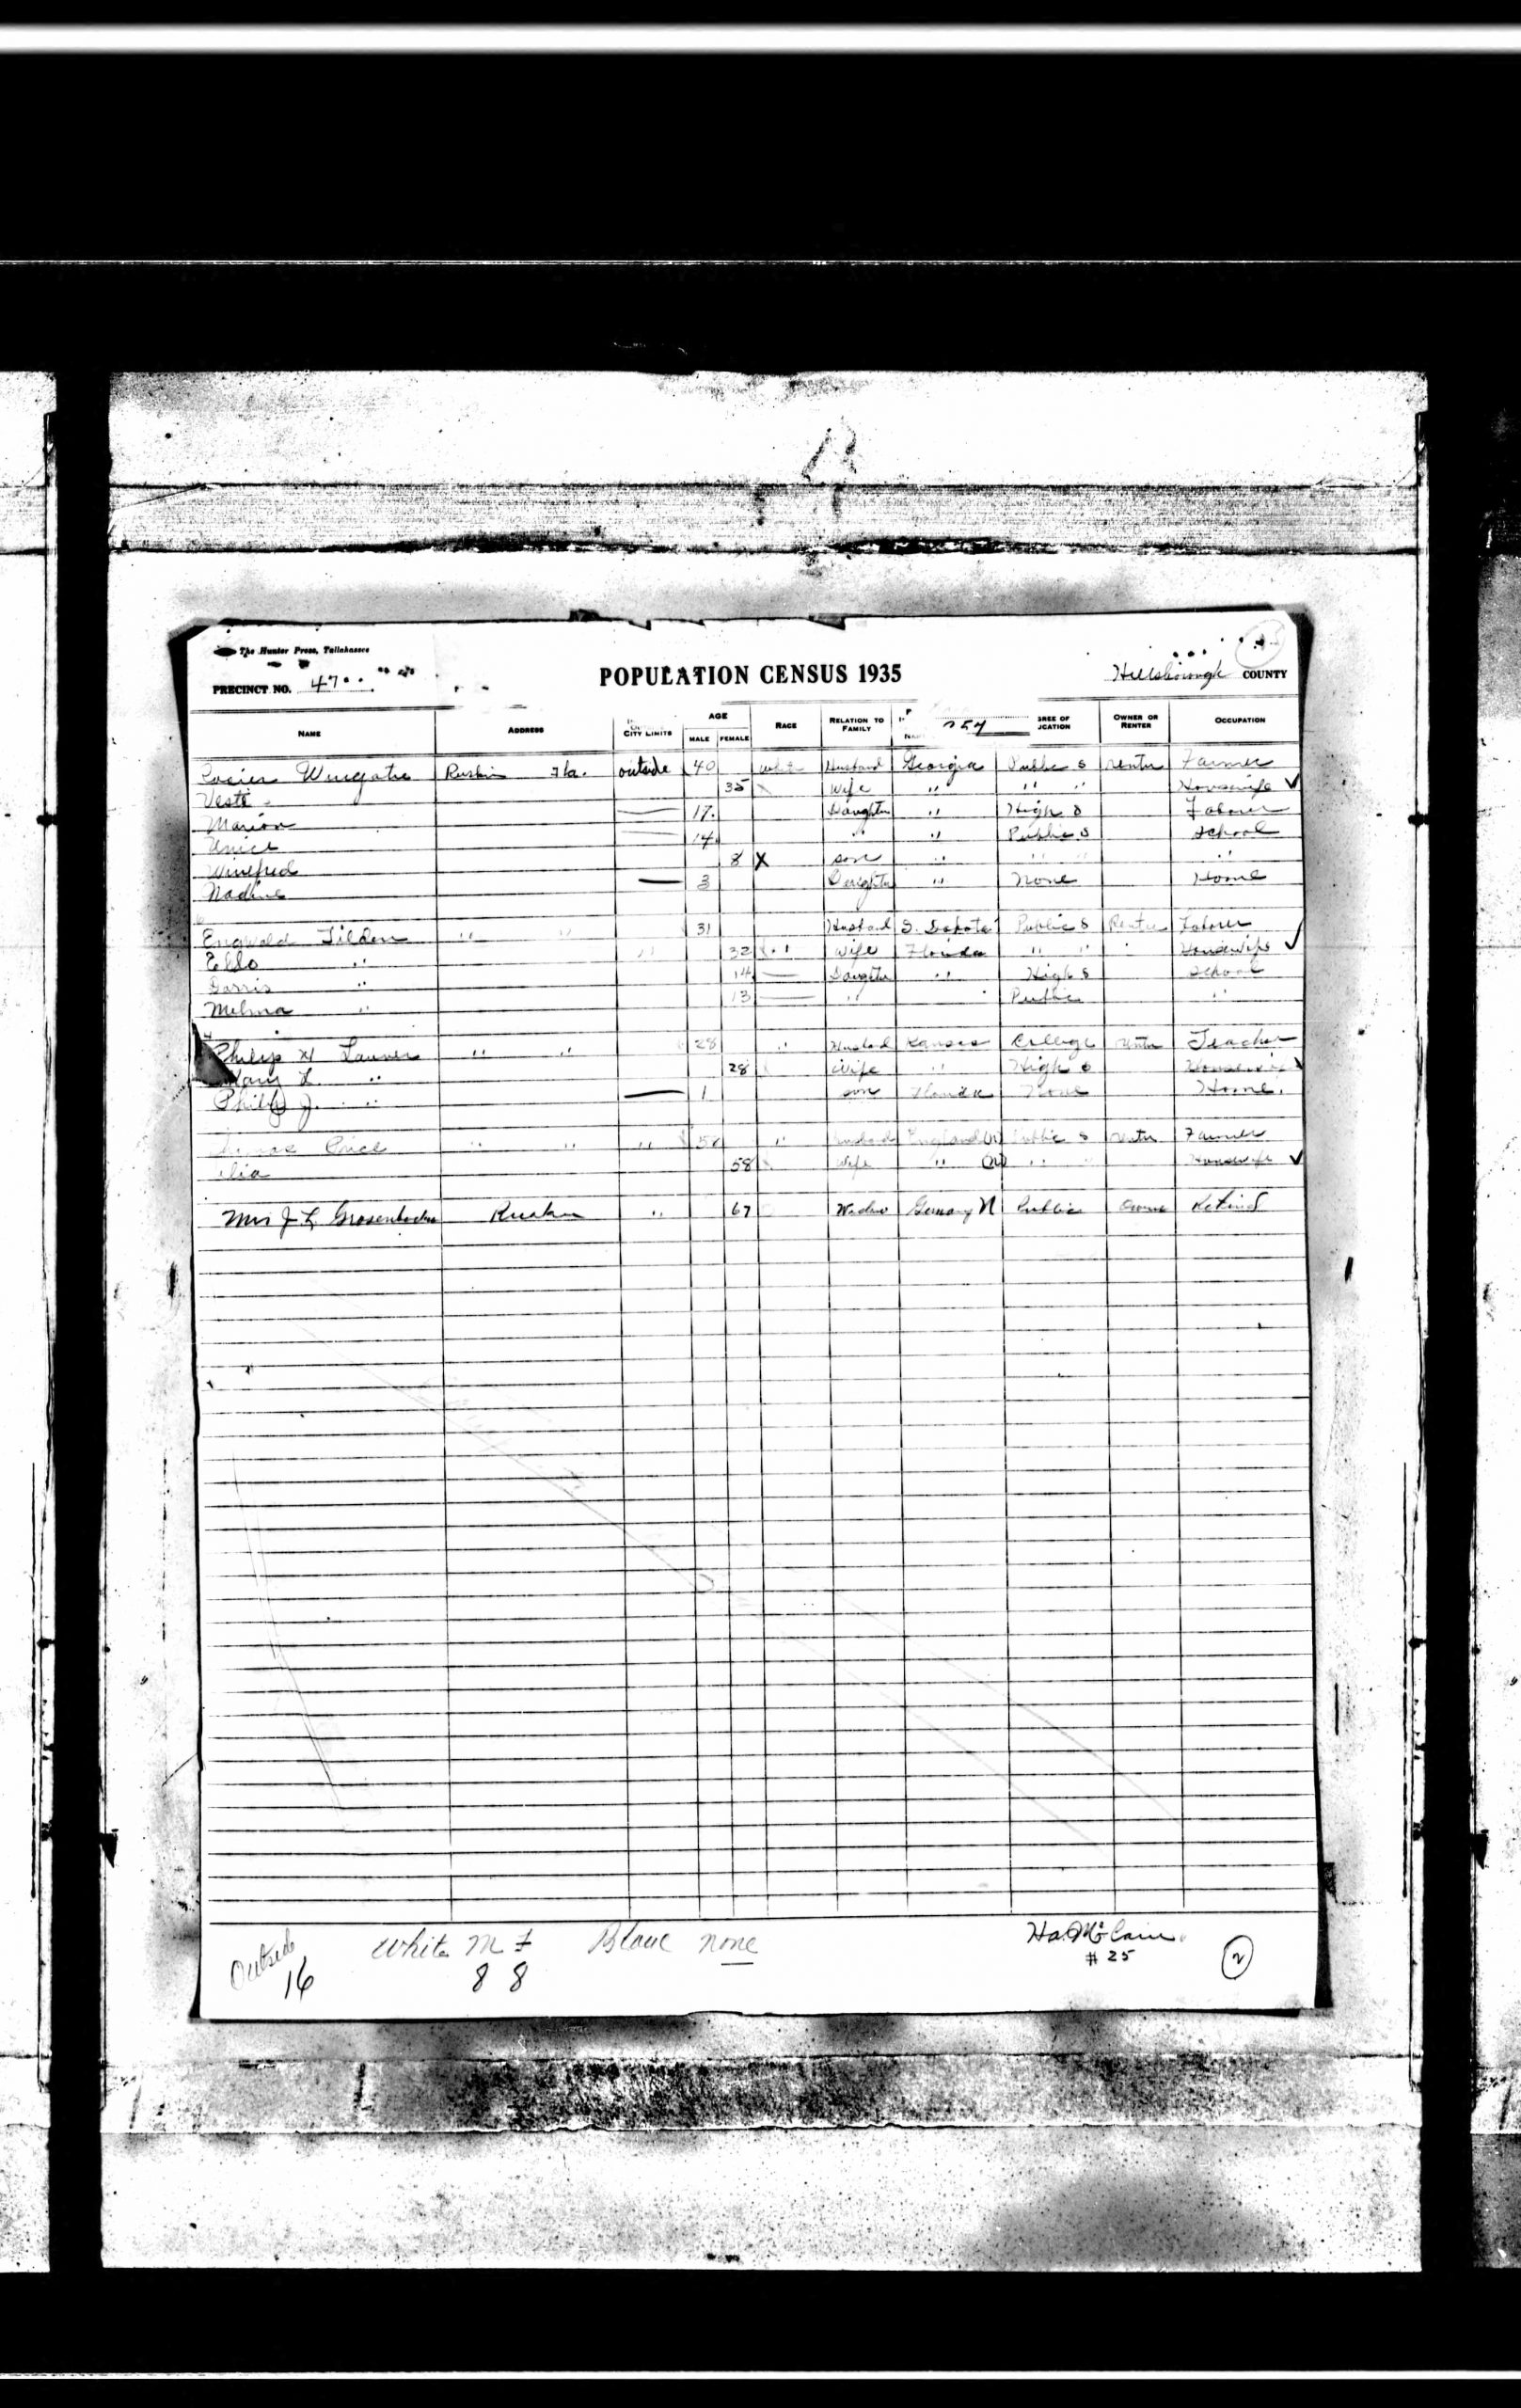 The Hunter Press, Tallahassee
PRECINCT NO. 47
POPULATION CENSUS 1935
Hillsborough COUNTY
NAME ADDRESS CITY LIMITS AGE MALE FEMALE RACE RELATION TO FAMILY 754 DEGREE OF EDUCATION OWNER OR RENTER OCCUPATION
Wingate Ruskin Fla. outside 40 White Husband Georgia Public S renter Farmer
35 Wife " " " Housewife ✓
Marion 17 Daughter " High S Laborer
Unice 14 " " Public S School
Winefred 8 X son " " " "
Nadine 3 Daughter " None Home
Engwald Tilden " " 31 Husband S. Dakota Public S Renter Laborer
" " 32 Wife Florida " " " Housewife ✓
Dorris " 14 Daughter " High S School
Melma " 13 " " Public "
Philip H " " 28 " Husband Kansas College renter Teacher
Mary L " 28 Wife " High S Housewife ✓
Philip J. " 1 son Florida None Home.
Thomas Price " " " 58 " Husband England (N) Public S renter Farmer
58 Wife " (N) " " Housewife ✓
Mrs J L Ruskin " 67 Widow Germany N Public Owner Retired
Outside
16
White M F Black none
8 8
Ha. McCain
# 25
2